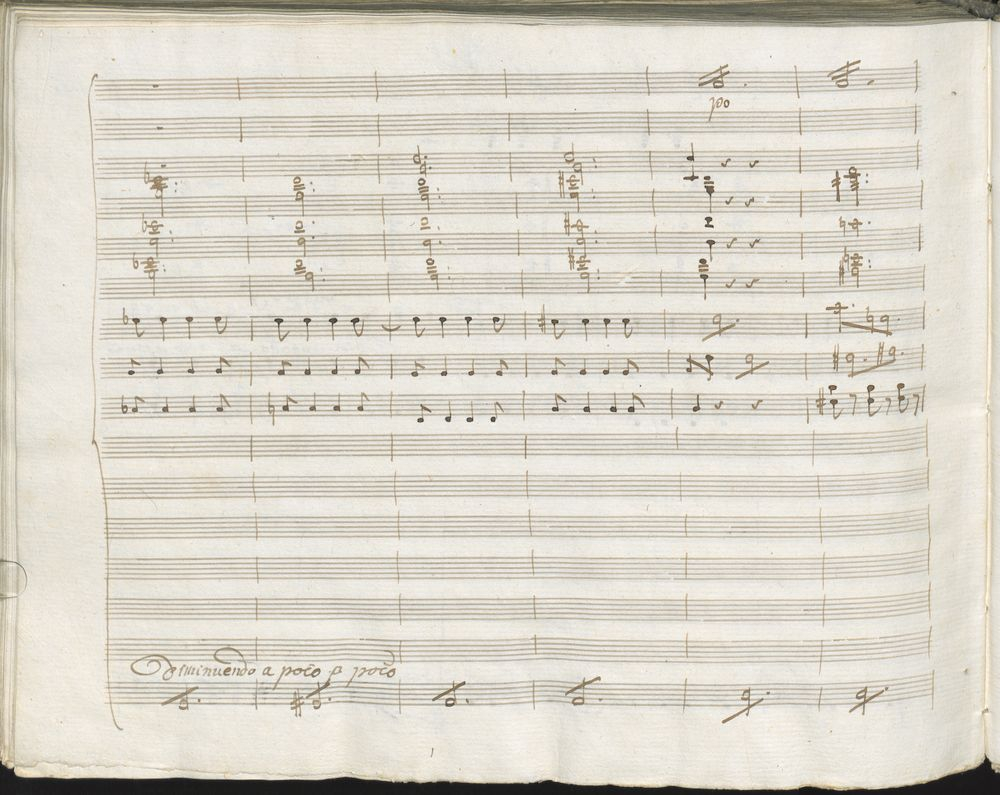 po
Diminuendo a poco a poco